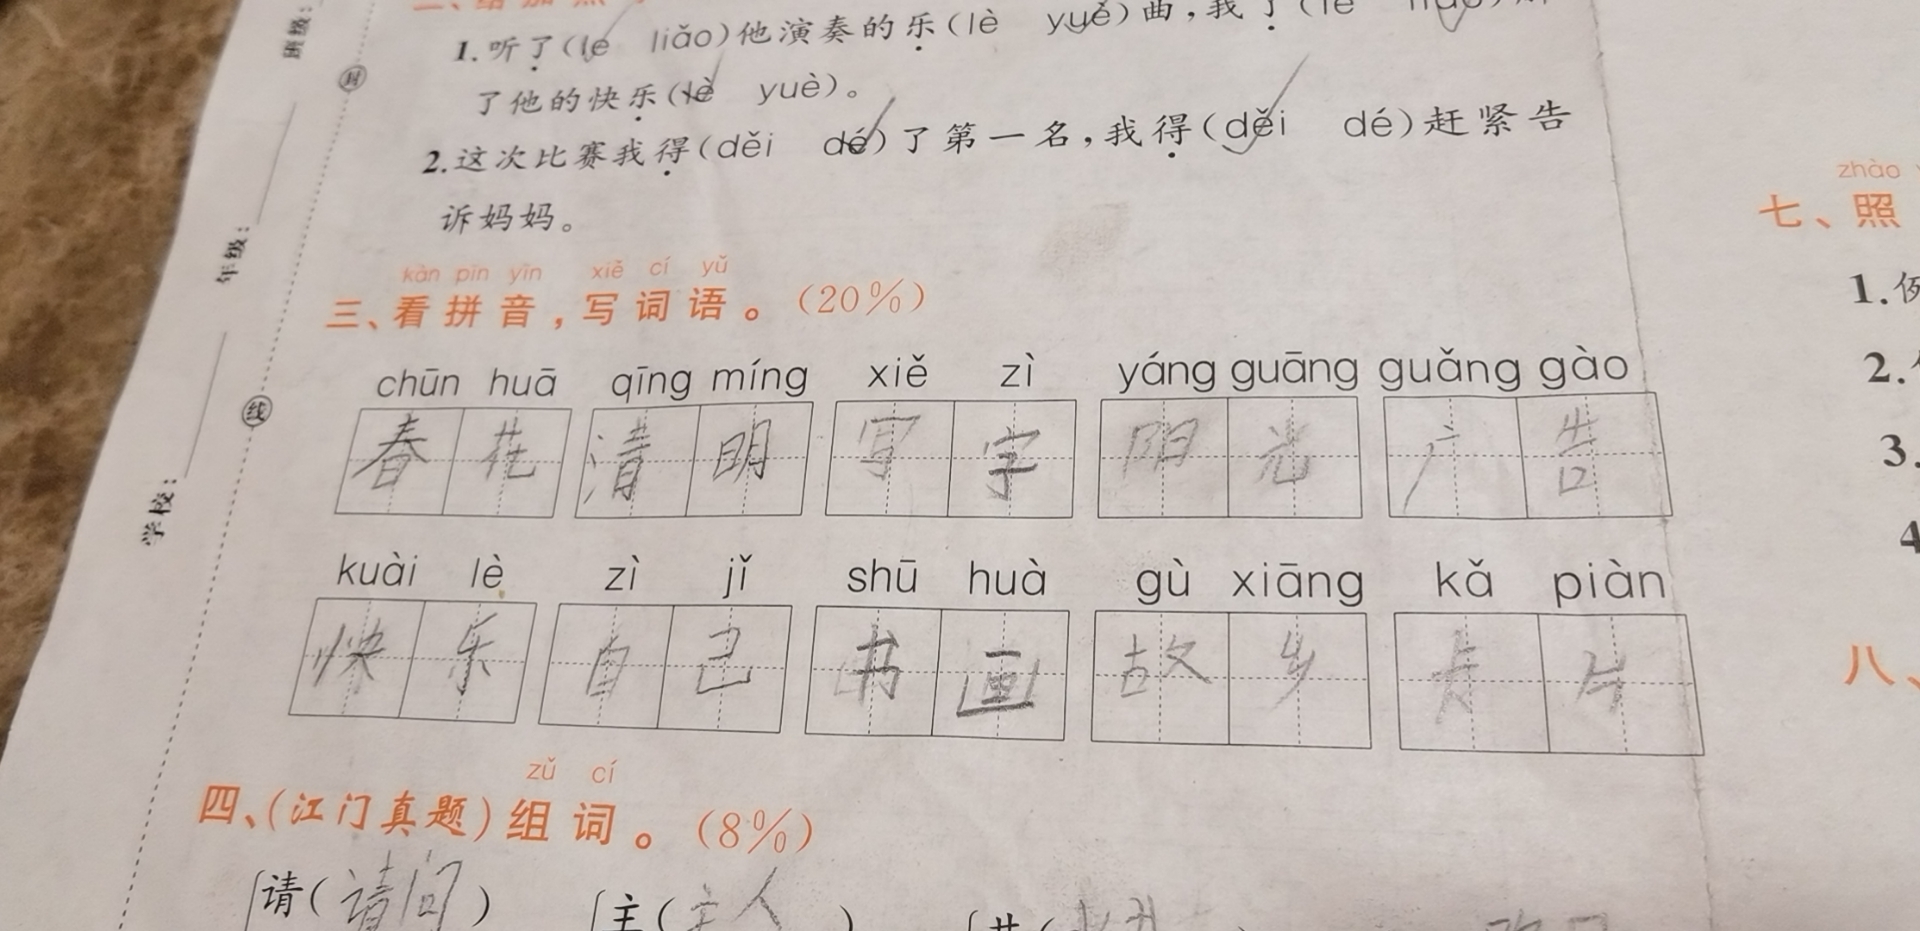 班级:
封
1.听了(le liǎo)他演奏的乐(lè yuè)曲,我了(le liǎo)
了他的快乐(lè yuè)。
2.这次比赛我得(děi dé)了第一名,我得(děi dé)赶紧告
诉妈妈。
年级:
kàn pīn yīn xiě cí yǔ
三、看拼音,写词语。(20%)
chūn huā qīng míng xiě zì yáng guāng guǎng gào
春花 清明 写字 阳光 广告
线
学校:
kuài lè zì jǐ shū huà gù xiāng kǎ piàn
快乐 自己 书画 故乡 卡片
zǔ cí
四、(江门真题)组词。(8%)
请(请问) 主(主人)
zhào
七、照
1.例
2.
3.
4
八、